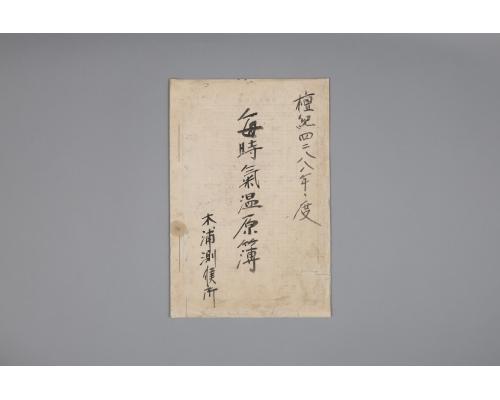 檀紀四二八八年度
每時氣温原簿
木浦測候所